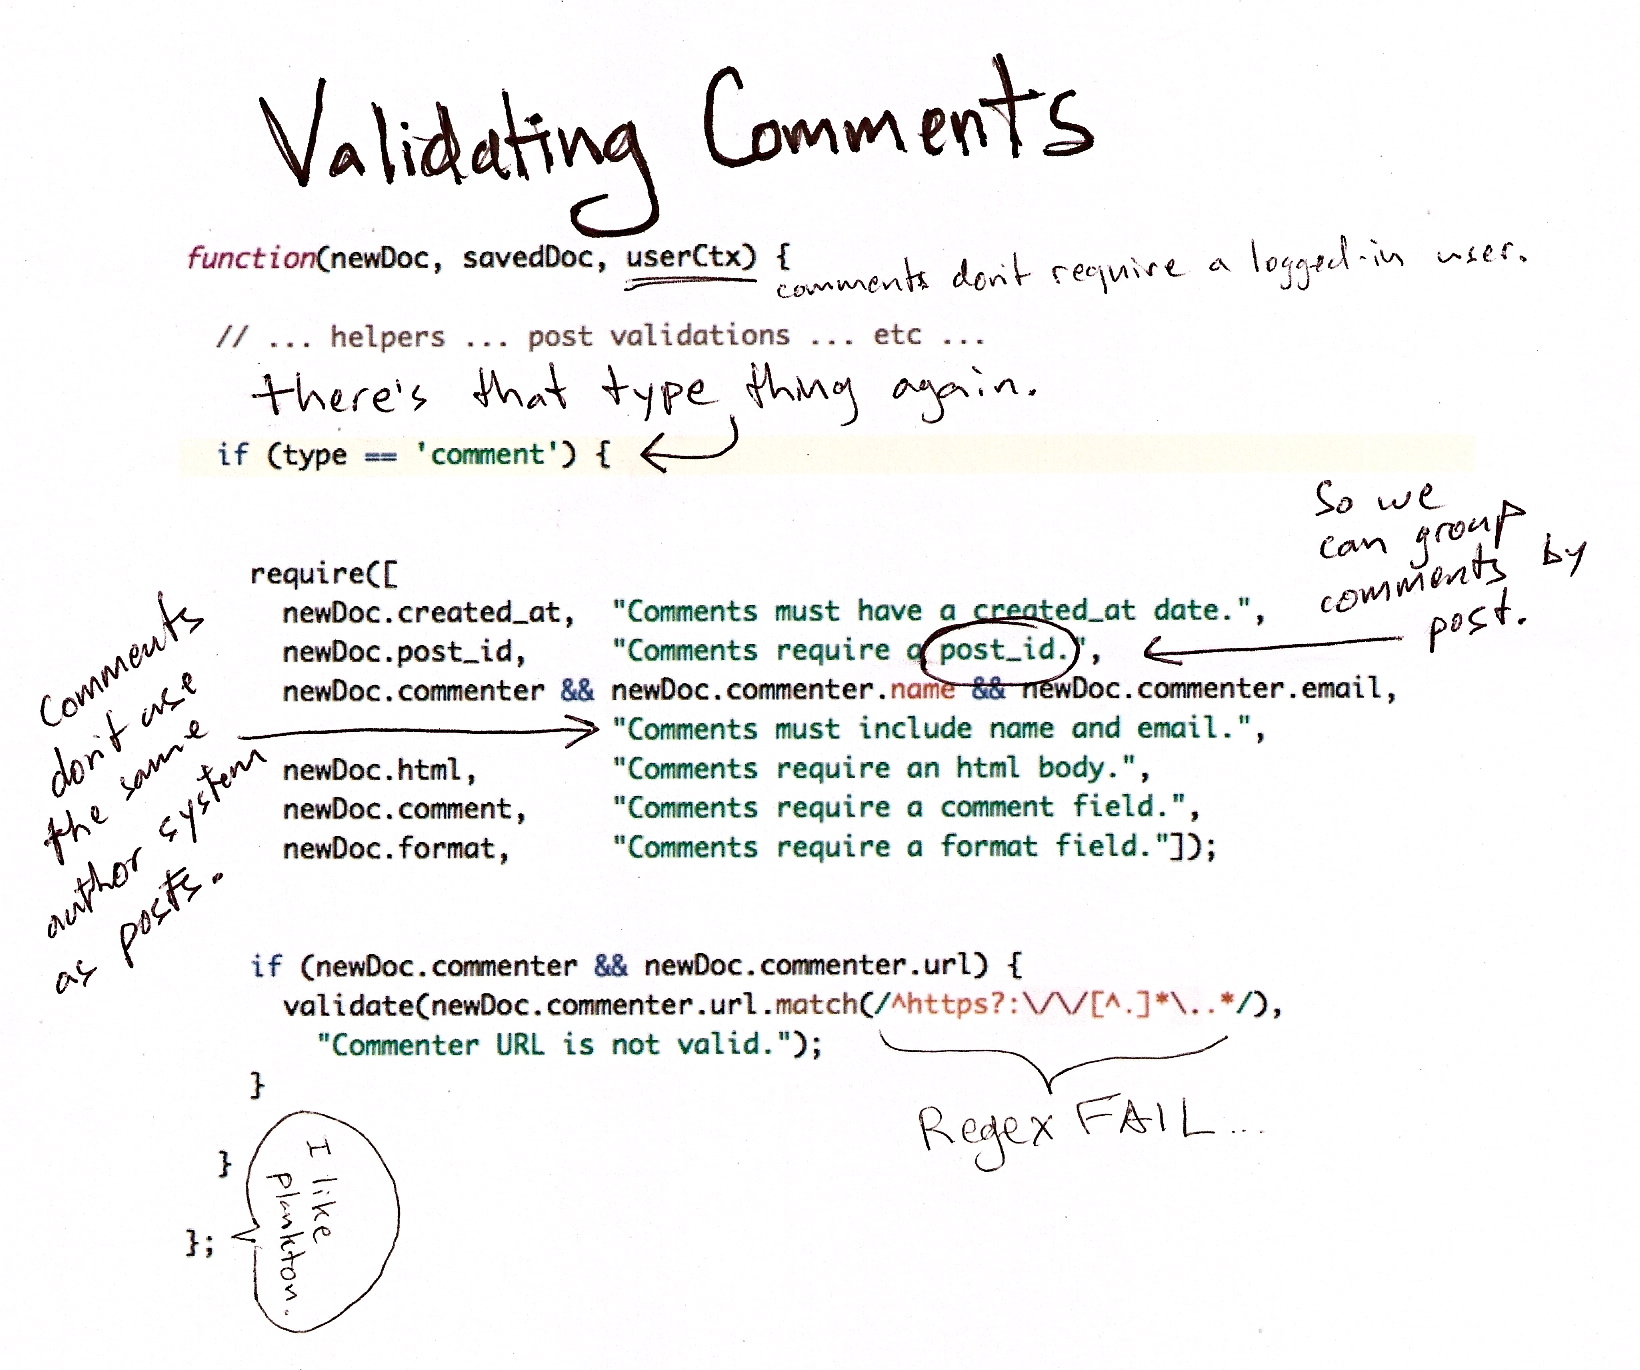 Validating Comments
function(newDoc, savedDoc, userCtx) {
comments don't require a logged-in user.
// ... helpers ... post validations ... etc ...
there's that type thing again.
if (type == 'comment') {
So we
can group
comments by
post.
require([
newDoc.created_at, "Comments must have a created_at date.",
newDoc.post_id, "Comments require a post_id.",
newDoc.commenter && newDoc.commenter.name && newDoc.commenter.email,
"Comments must include name and email.",
newDoc.html, "Comments require an html body.",
newDoc.comment, "Comments require a comment field.",
newDoc.format, "Comments require a format field."]);
Comments
don't use
the same
author system
as posts.
if (newDoc.commenter && newDoc.commenter.url) {
validate(newDoc.commenter.url.match(/^https?:\/\/[^.]*\..*/),
"Commenter URL is not valid.");
}
Regex FAIL...
}
};
I like
plankton.